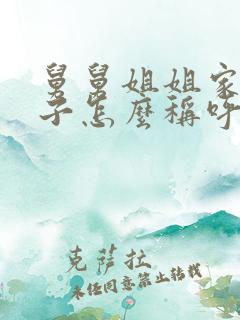 舅舅姐姐家
子怎麼稱呼
克薩拉
未经同意禁止转载